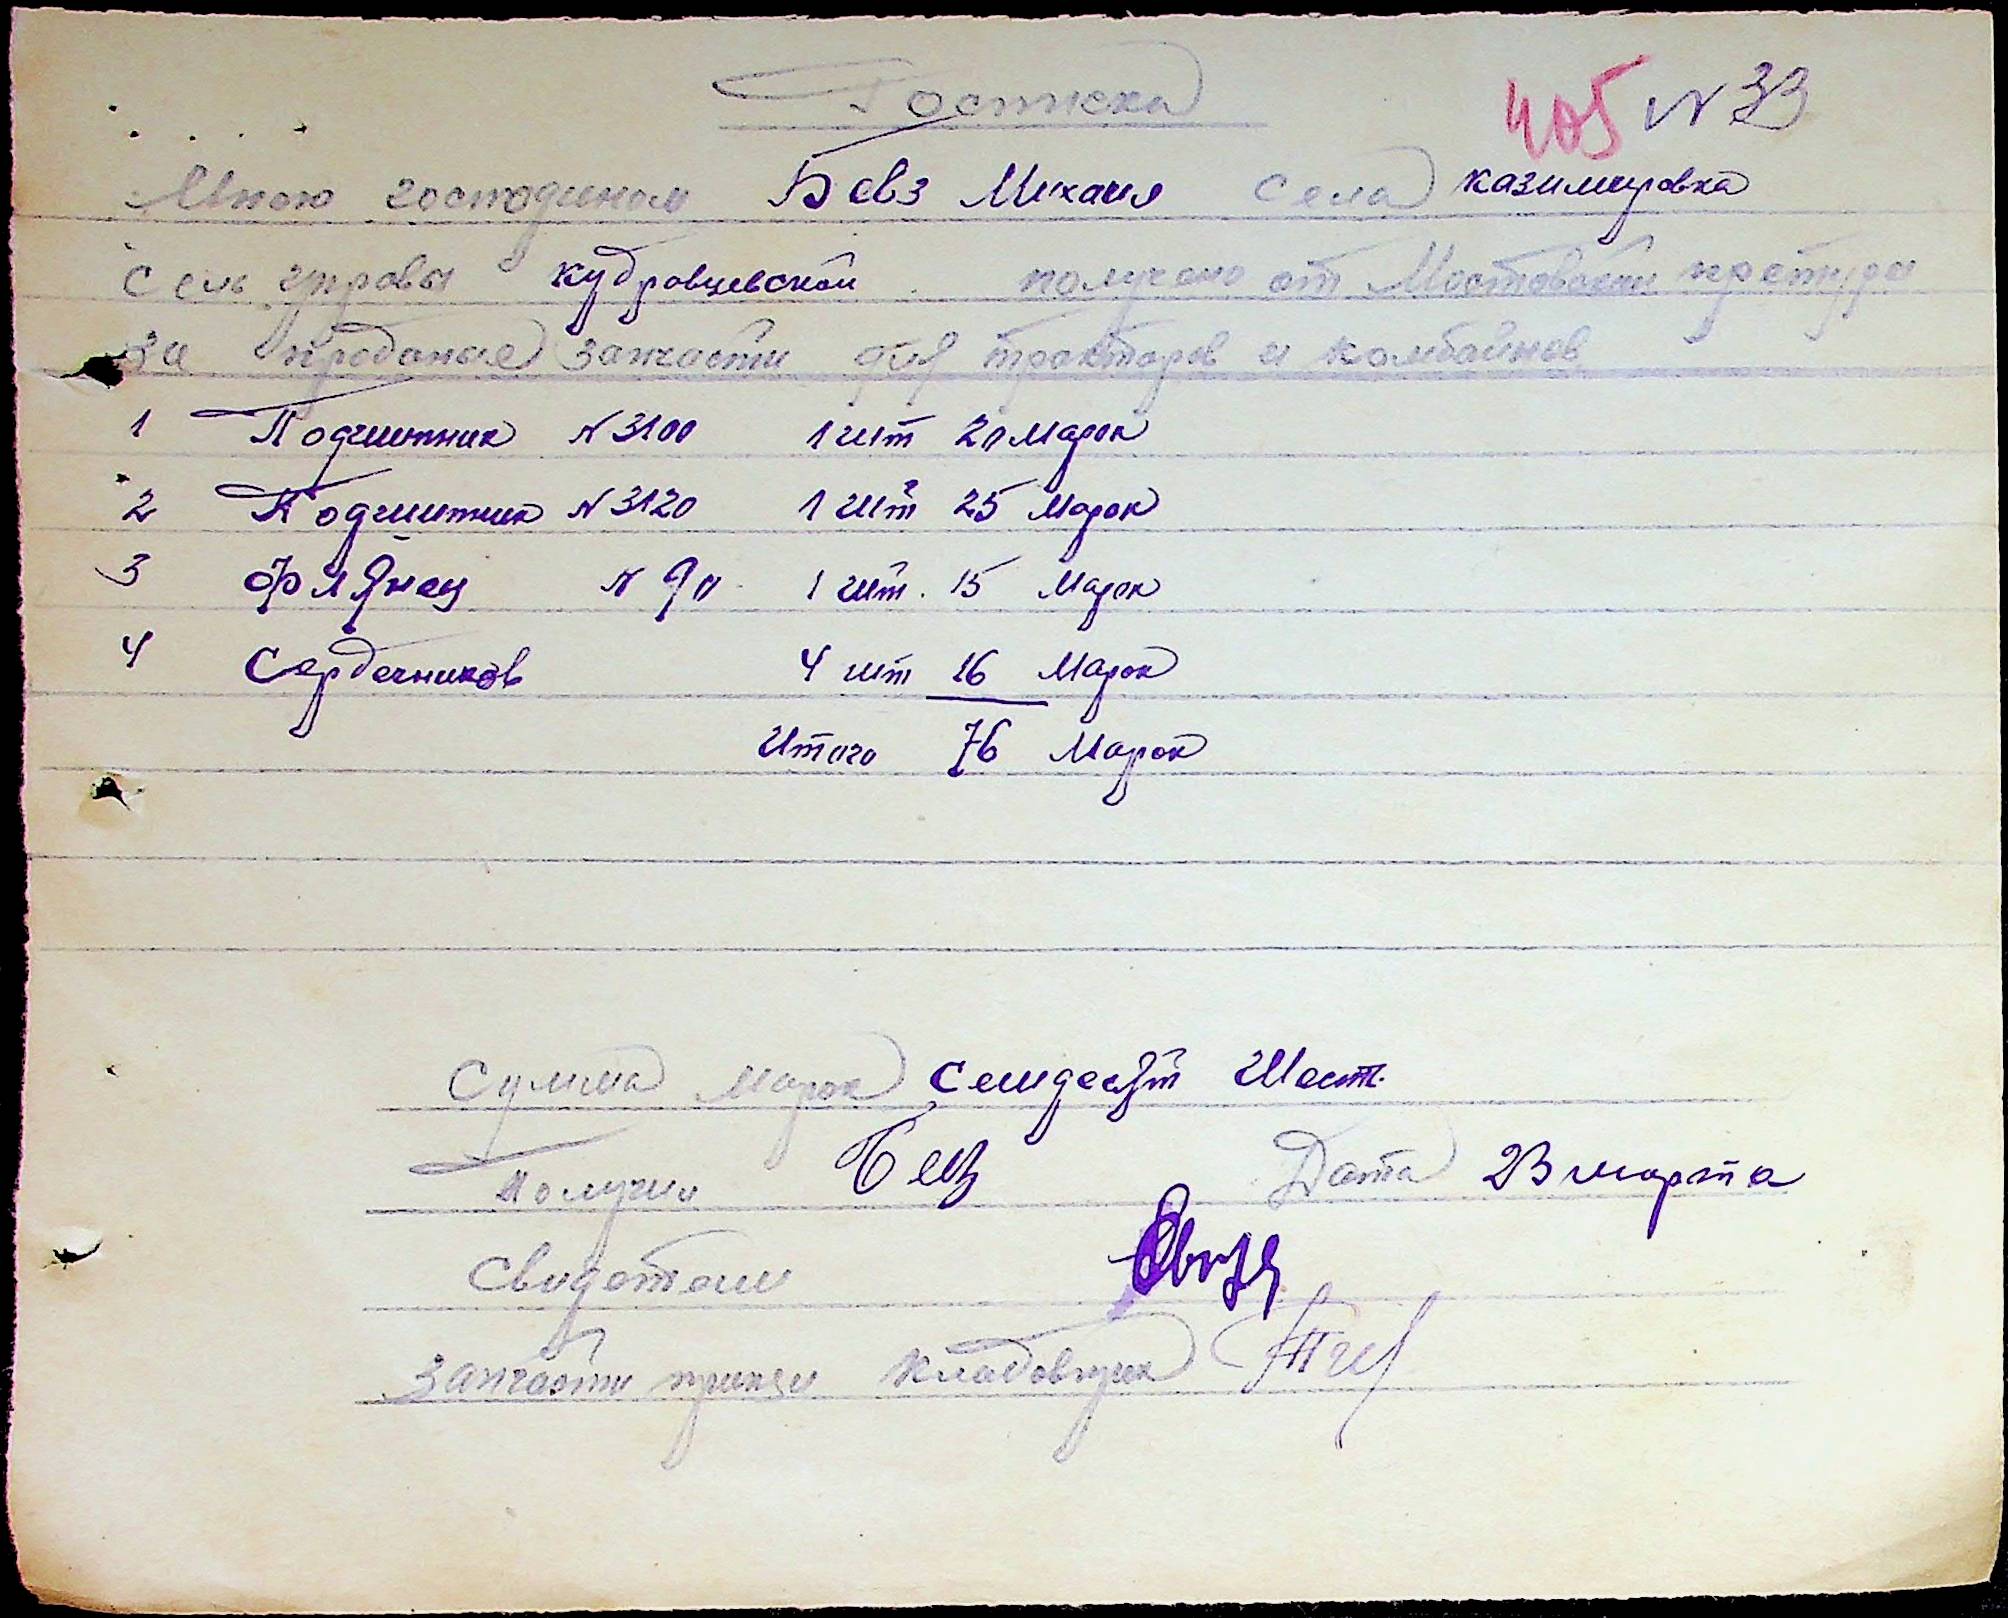 Росписка 405 N 33
Мною господином Бевз Михаил села казимировка
Сель управы кудровцевской получено от Мостовской крестура
за проданые запчасти для тракторов и комбайнов
1 Подчипник N 3100 1 шт 20 марок
2 Подчипник N 3120 1 шт 25 марок
3 Флянец N 90 1 шт. 15 марок
4 Сердечников 4 шт 16 марок
Итого 76 марок
Сумма марок семдесят Шест.
Получил Бевз Дата 23 марта
Свидетели
Запчасти принял кладовщик